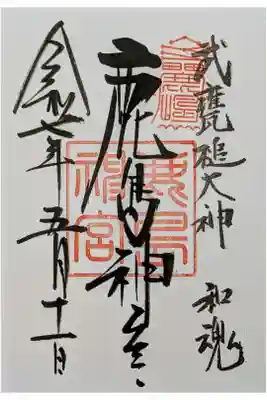 武甕槌大神
和魂
鹿島神宮
鹿島神宮
令和七年五月十一日